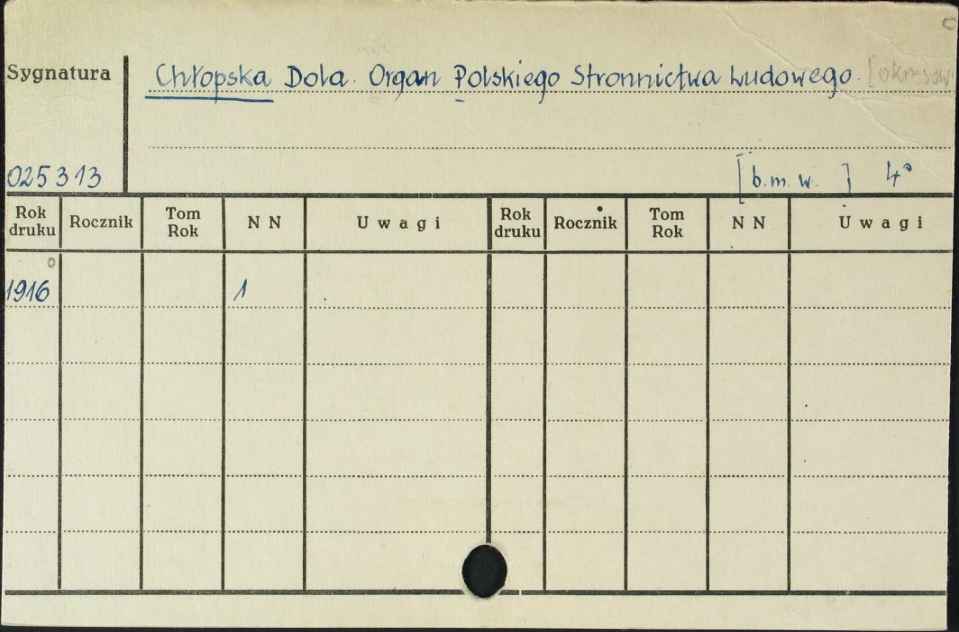 Sygnatura
Chłopska Dola. Organ Polskiego Stronnictwa Ludowego.
025313
[b.m.w. ] 4°
Rok druku Rocznik Tom Rok N N Uwagi Rok druku Rocznik Tom Rok N N Uwagi
1916 1